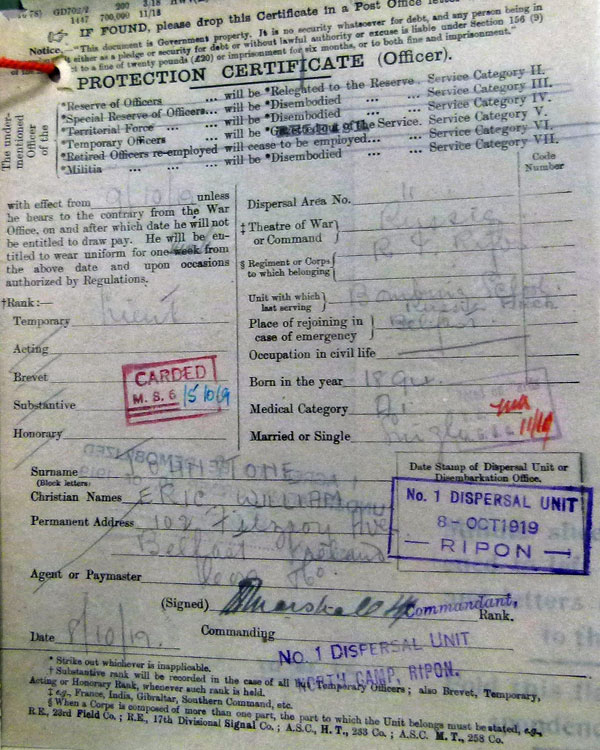 GD702/2 3.18
1447 700,000 11/18
IF FOUND, please drop this Certificate in a Post Office
Notice.—"This document is Government property. It is no security whatsoever for debt, and any person being
either as a pledge or security for debt or without lawful authority or excuse is liable under Section 156 (9)
to a fine of twenty pounds (£20) or imprisonment for six months, or to both fine and imprisonment."
PROTECTION CERTIFICATE (Officer).
The under-mentioned Officer of the
*Reserve of Officers ... will be *Relegated to the Reserve. Service Category II.
*Special Reserve of Officers... will be *Disembodied ... Service Category III.
*Territorial Force ... ... will be *Disembodied ... ... Service Category IV.
*Temporary Officers ... will be out of the Service. Service Category V.
*Retired Officers re-employed will cease to be employed... ... Service Category VI
*Militia ... ... ... will be *Disembodied ... ... Service Category VII.
Code Number
with effect from 9/10/19 unless
he hears to the contrary from the War
Office, on and after which date he will not
be entitled to draw pay. He will be en-
titled to wear uniform for one from
the above date and upon occasions
authorized by Regulations.
Dispersal Area No. 11
‡ Theatre of War or Command Russia
§ Regiment or Corps to which belonging
Unit with which last serving
Place of rejoining in case of emergency
Occupation in civil life
Born in the year
Medical Category A1
Married or Single Single
11/10
†Rank:—
Temporary Lieut
Acting
Brevet
Substantive
Honorary
CARDED
M.S.6 15/10/19
DEMOBILIZED
Surname JOHNSTONE
(Block letters)
Christian Names ERIC WILLIAM
Permanent Address 102 Fitzroy Ave
Belfast Ireland
Agent or Paymaster
Date Stamp of Dispersal Unit or
Disembarkation Office.
No. 1 DISPERSAL UNIT
8-OCT1919
— RIPON —
(Signed) Marshall Commandant,
Rank.
Commanding No. 1 DISPERSAL UNIT
NORTH CAMP, RIPON.
Date 8/10/19.
* Strike out whichever is inapplicable.
† Substantive rank will be recorded in the case of all Temporary Officers; also Brevet, Temporary,
Acting or Honorary Rank, whenever such rank is held.
‡ e.g., France, India, Gibraltar, Southern Command, etc.
§ When a Corps is composed of more than one part, the part to which the Unit belongs must be stated, e.g.,
R.E., 23rd Field Co.; R.E., 17th Divisional Signal Co.; A.S.C., H.T., 233 Co.; A.S.C. M.T., 258 Co.